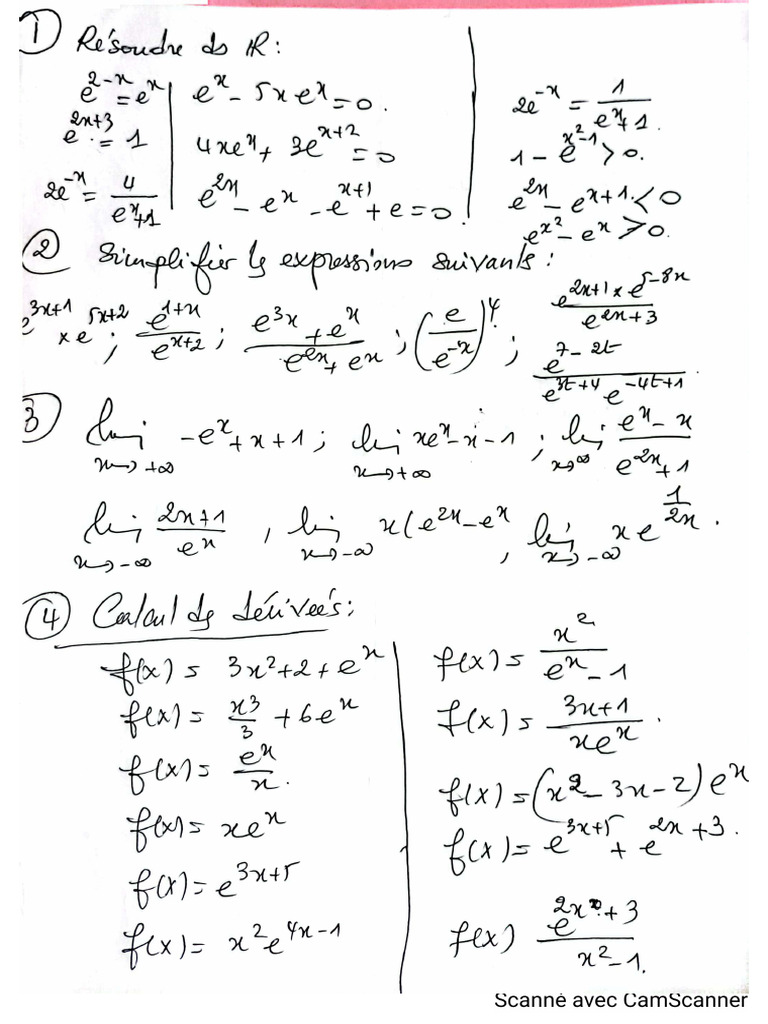 ① Résoudre ds ℝ :
e^{2-x} = e^x
e^{2x+3} = 1
2e^{-x} = 4/(e^x+1)
e^x - 5xe^x = 0.
4xe^x + 3e^{x+2} = 0
e^{2x} - e^x - e^{x+1} + e = 0.
2e^{-x} = 1/(e^x+1).
1 - e^{x^2-1} > 0.
e^{2x} - e^{x+1} < 0
e^{x^2} - e^x ≥ 0.
② Simplifier les expressions suivants :
e^{3x+1} × e^{5x+2} ; e^{1+x}/e^{x+2} ; (e^{3x} + e^x)/(e^{2x} + e^x) ; (e/e^{-x})^4 ; (e^{2x+1} × e^{5-8x})/e^{2x+3}
e^{7-2t}/(e^{3t+4} e^{-4t+1}).
③ lim x→+∞ -e^x + x + 1 ; lim x→+∞ xe^x - x - 1 ; lim x→∞ (e^x - x)/(e^{2x} + 1)
lim x→-∞ (2x+1)/e^x , lim x→-∞ x(e^{2x} - e^x , lim x→-∞ x e^{1/2x} .
④ Calcul des dérivées :
f(x) = 3x^2 + 2 + e^x
f(x) = x^3/3 + 6e^x
f(x) = e^x/x.
f(x) = xe^x
f(x) = e^{3x+5}
f(x) = x^2 e^{4x-1}
f(x) = x^2/(e^x - 1)
f(x) = (3x+1)/(xe^x).
f(x) = (x^2 - 3x - 2) e^x
f(x) = e^{3x+5} + e^{2x+3}.
f(x) e^{2x+3}/(x^2 - 1).
Scanné avec CamScanner